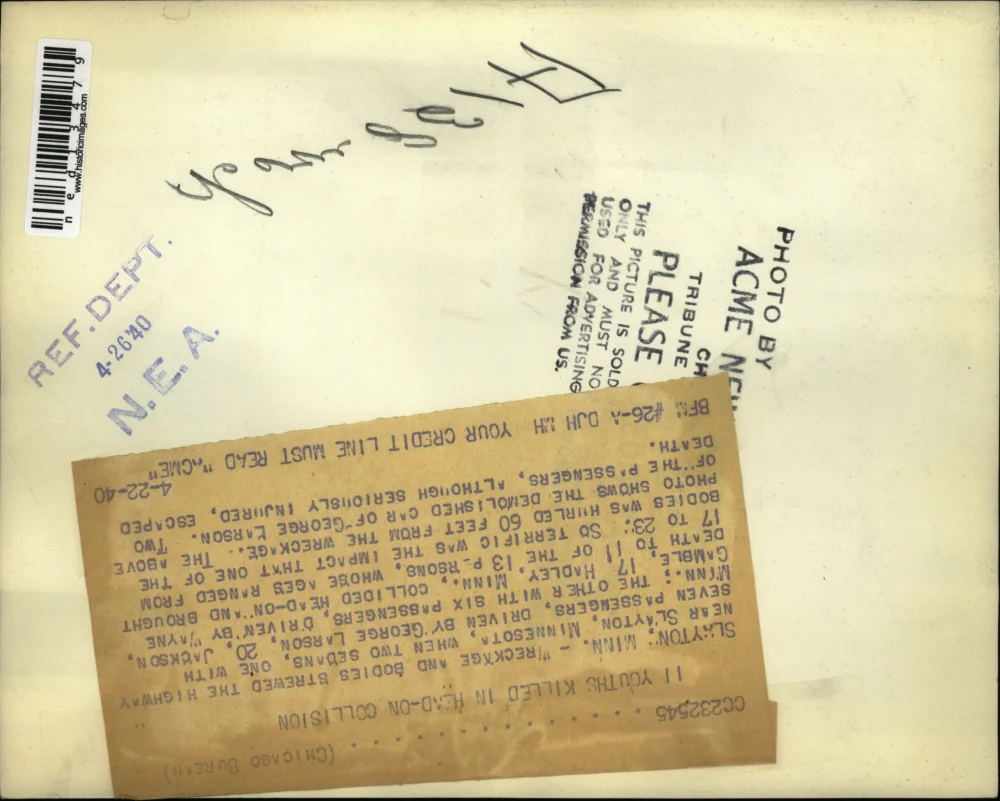 CC232545 (CHICAGO BUREAU)
11 YOUTHS KILLED IN HEAD-ON COLLISION
SLAYTON, MINN. – WRECKAGE AND BODIES STREWED THE HIGHWAY
NEAR SLAYTON, MINNESOTA, WHEN TWO SEDANS, ONE WITH
SEVEN PASSENGERS, DRIVEN BY GEORGE LARSON, 20, JACKSON,
MINN.; THE OTHER WITH SIX PASSENGERS, DRIVEN BY WAYNE
GAMBLE, 17, HADLEY, MINN., COLLIDED HEAD-ON, AND BROUGHT
DEATH TO 11 OF THE 13 PERSONS, WHOSE AGES RANGED FROM
17 TO 23. SO TERRIFIC WAS THE IMPACT THAT ONE OF THE
BODIES WAS HURLED 60 FEET FROM THE WRECKAGE. THE ABOVE
PHOTO SHOWS THE DEMOLISHED CAR OF GEORGE LARSON. TWO
OF THE PASSENGERS, ALTHOUGH SERIOUSLY INJURED, ESCAPED
DEATH.
BFM #26-A DJH MH YOUR CREDIT LINE MUST READ "ACME"
4-22-40
PHOTO BY
ACME NEW
CH
TRIBUNE
PLEASE
THIS PICTURE IS SOLD
ONLY AND MUST NO
USED FOR ADVERTISING
PERMISSION FROM US.
REF. DEPT.
4-26'40
N. E. A.
www.historicimages.com